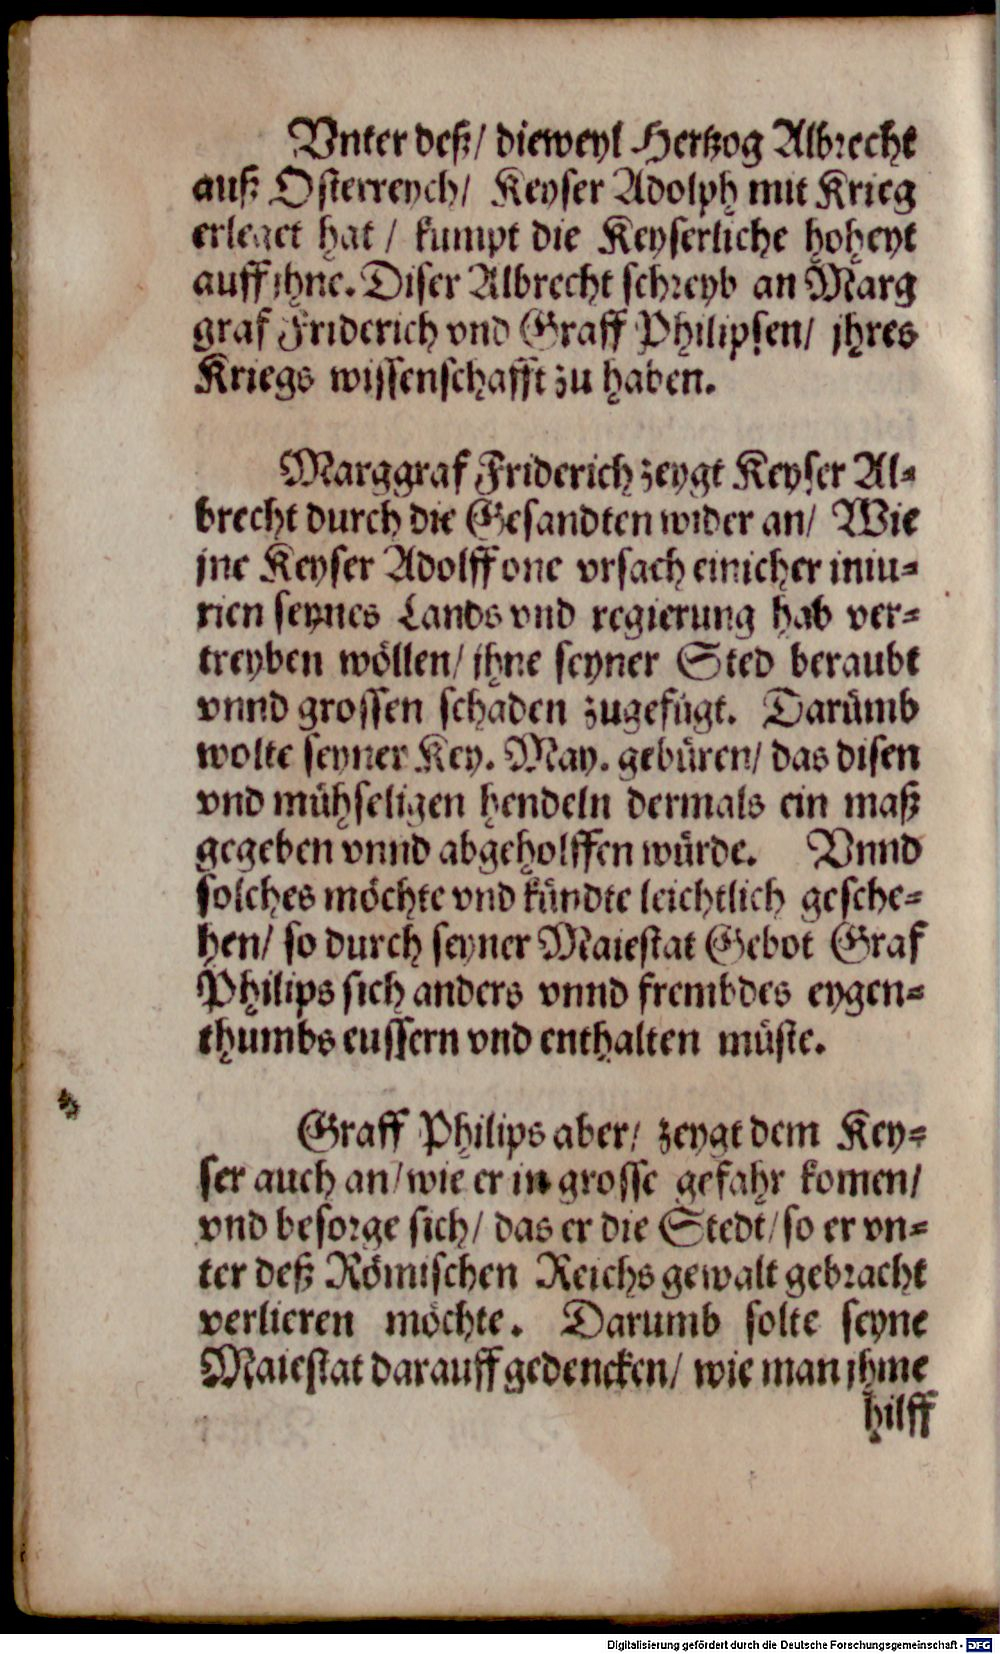 Vnter deß/ dieweyl Hertzog Albrecht
auß Osterreych/ Keyser Adolph mit Krieg
erleget hat / kumpt die Keyserliche hoheyt
auff jhne. Diser Albrecht schreyb an Marg
graf Friderich vnd Graff Philipsen/ jhres
Kriegs wissenschafft zu haben.
Marggraf Friderich zeygt Keyser Al-
brecht durch die Gesandten wider an/ Wie
jne Keyser Adolff one vrsach einicher iniu-
rien seynes Lands vnd regierung hab ver-
treyben wöllen/ jhne seyner Sted beraubt
vnnd grossen schaden zugefügt. Darümb
wolte seyner Key. May. gebüren/ das disen
vnd mühseligen hendeln dermals ein maß
gegeben vnnd abgeholffen würde. Vnnd
solches möchte vnd kündte leichtlich gesche-
hen/ so durch seyner Maiestat Gebot Graf
Philips sich anders vnnd frembdes eygen-
thumbs eussern vnd enthalten müste.
Graff Philips aber/ zeygt dem Key-
ser auch an/ wie er in grosse gefahr komen/
vnd besorge sich/ das er die Stedt/ so er vn-
ter deß Römischen Reichs gewalt gebracht
verlieren möchte. Darumb solte seyne
Maiestat darauff gedencken/ wie man jhme
hilff
Digitalisierung gefördert durch die Deutsche Forschungsgemeinschaft - DFG